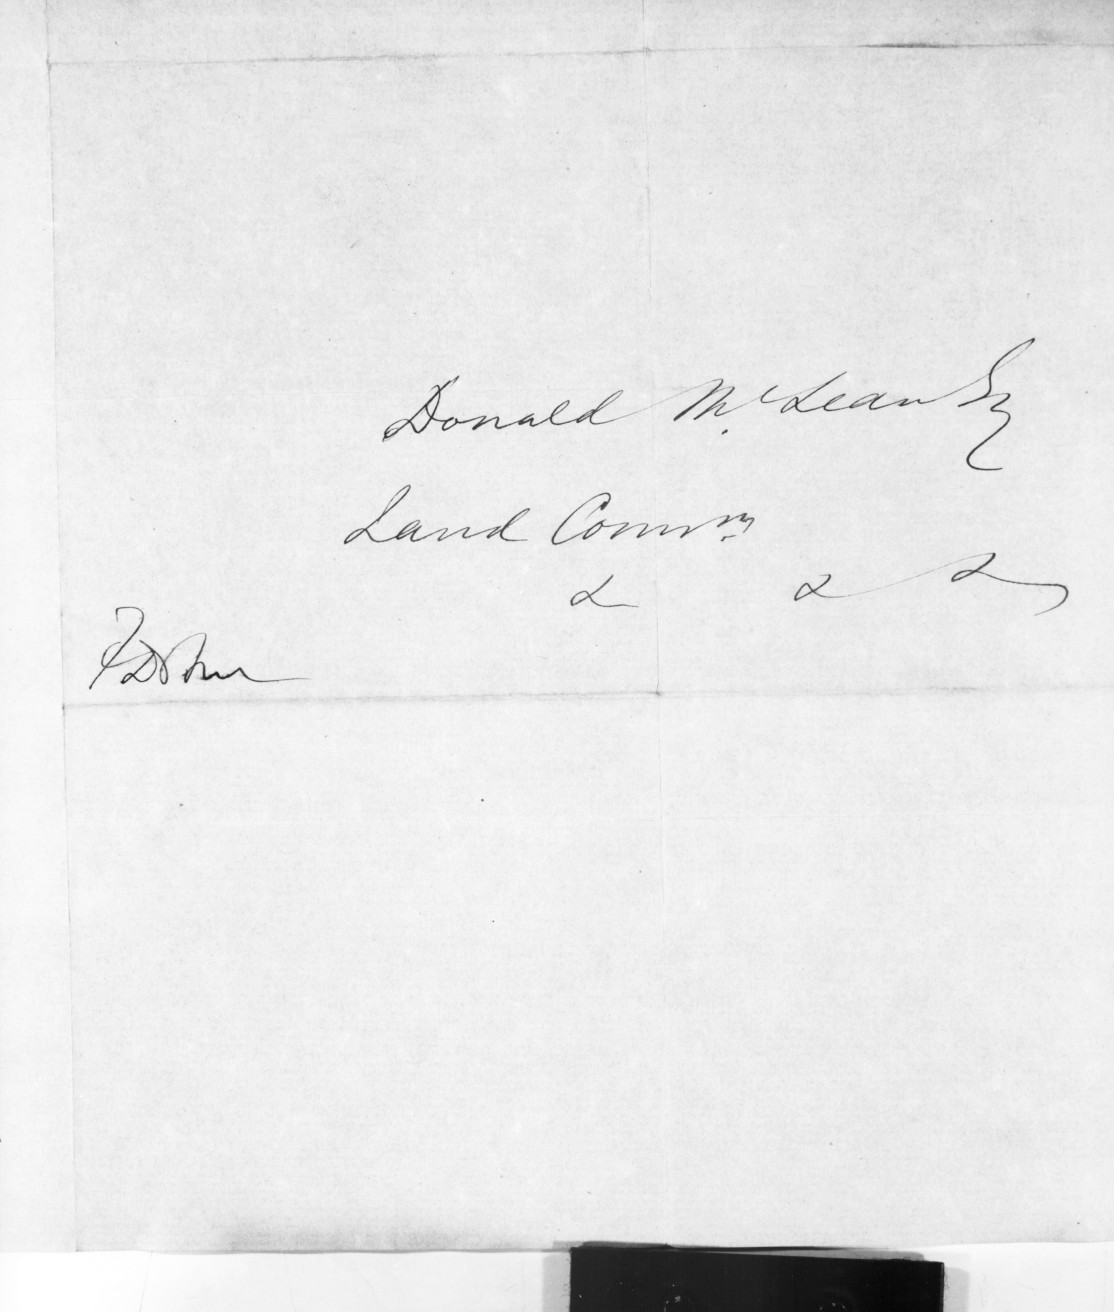 Donald McLean Esq
Land Commr
& & &